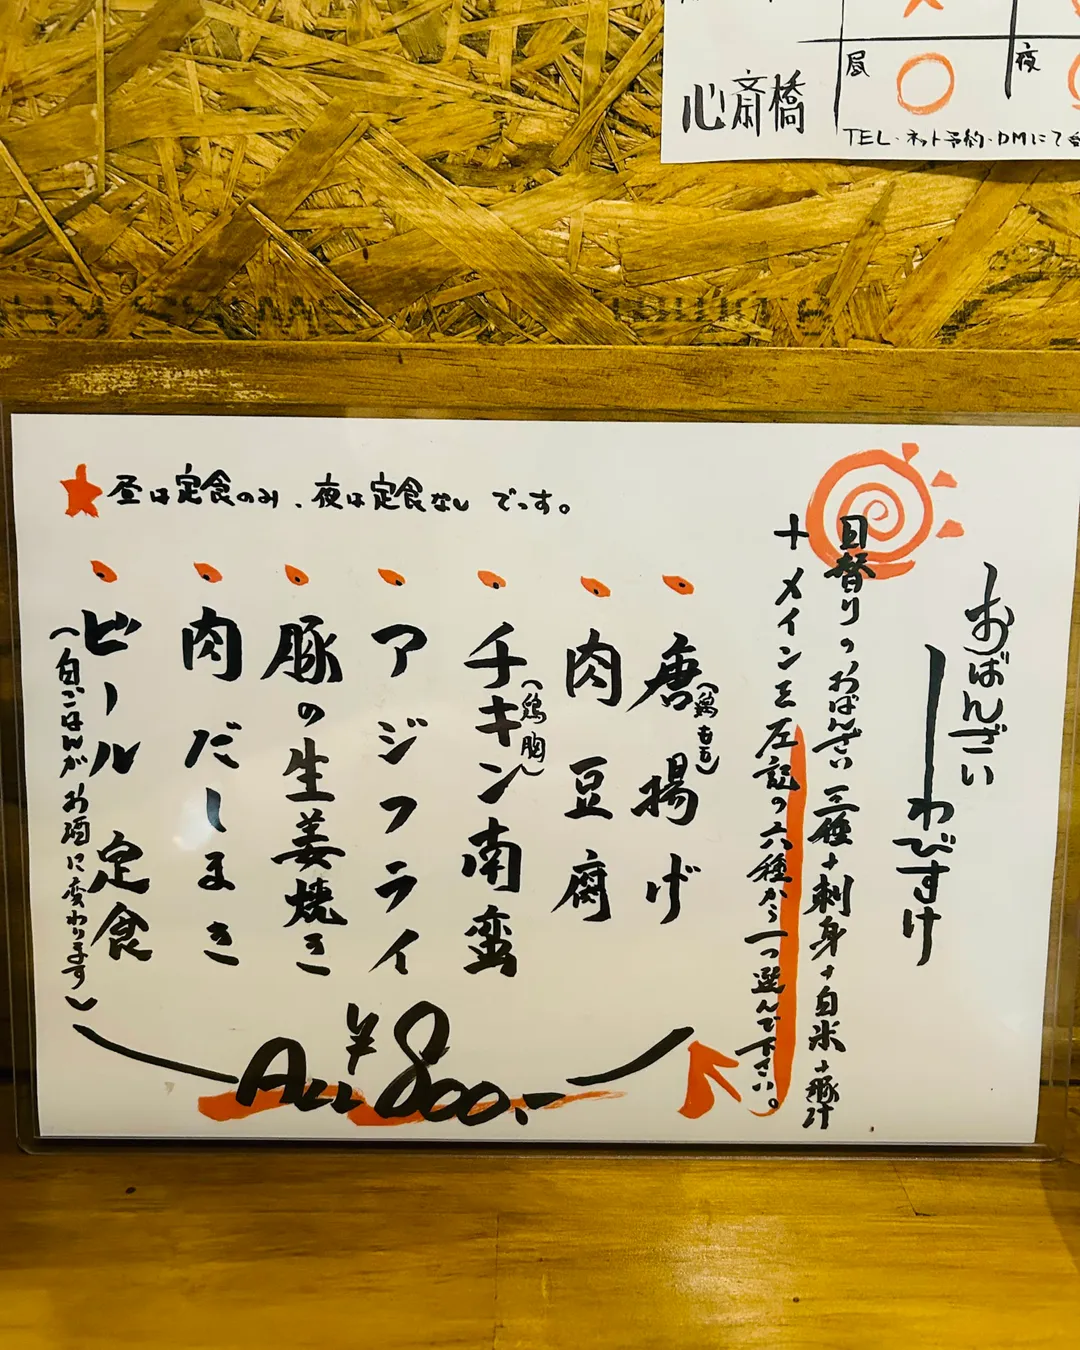 昼
夜
心斎橋
TEL・ネット予約・DMにて
★昼は定食のみ、夜は定食なしです。
おばんざい
わびすけ
日替りのおばんざい三種+刺身+白米+豚汁
+メインを左記の六種から一つ選んで下さい。
唐揚げ
(鶏もも)
肉豆腐
チキン南蛮
(鶏胸)
アジフライ
豚の生姜焼き
肉だしまき
ビール定食
(白ごはんがお酒に変わります)
All ¥800.-